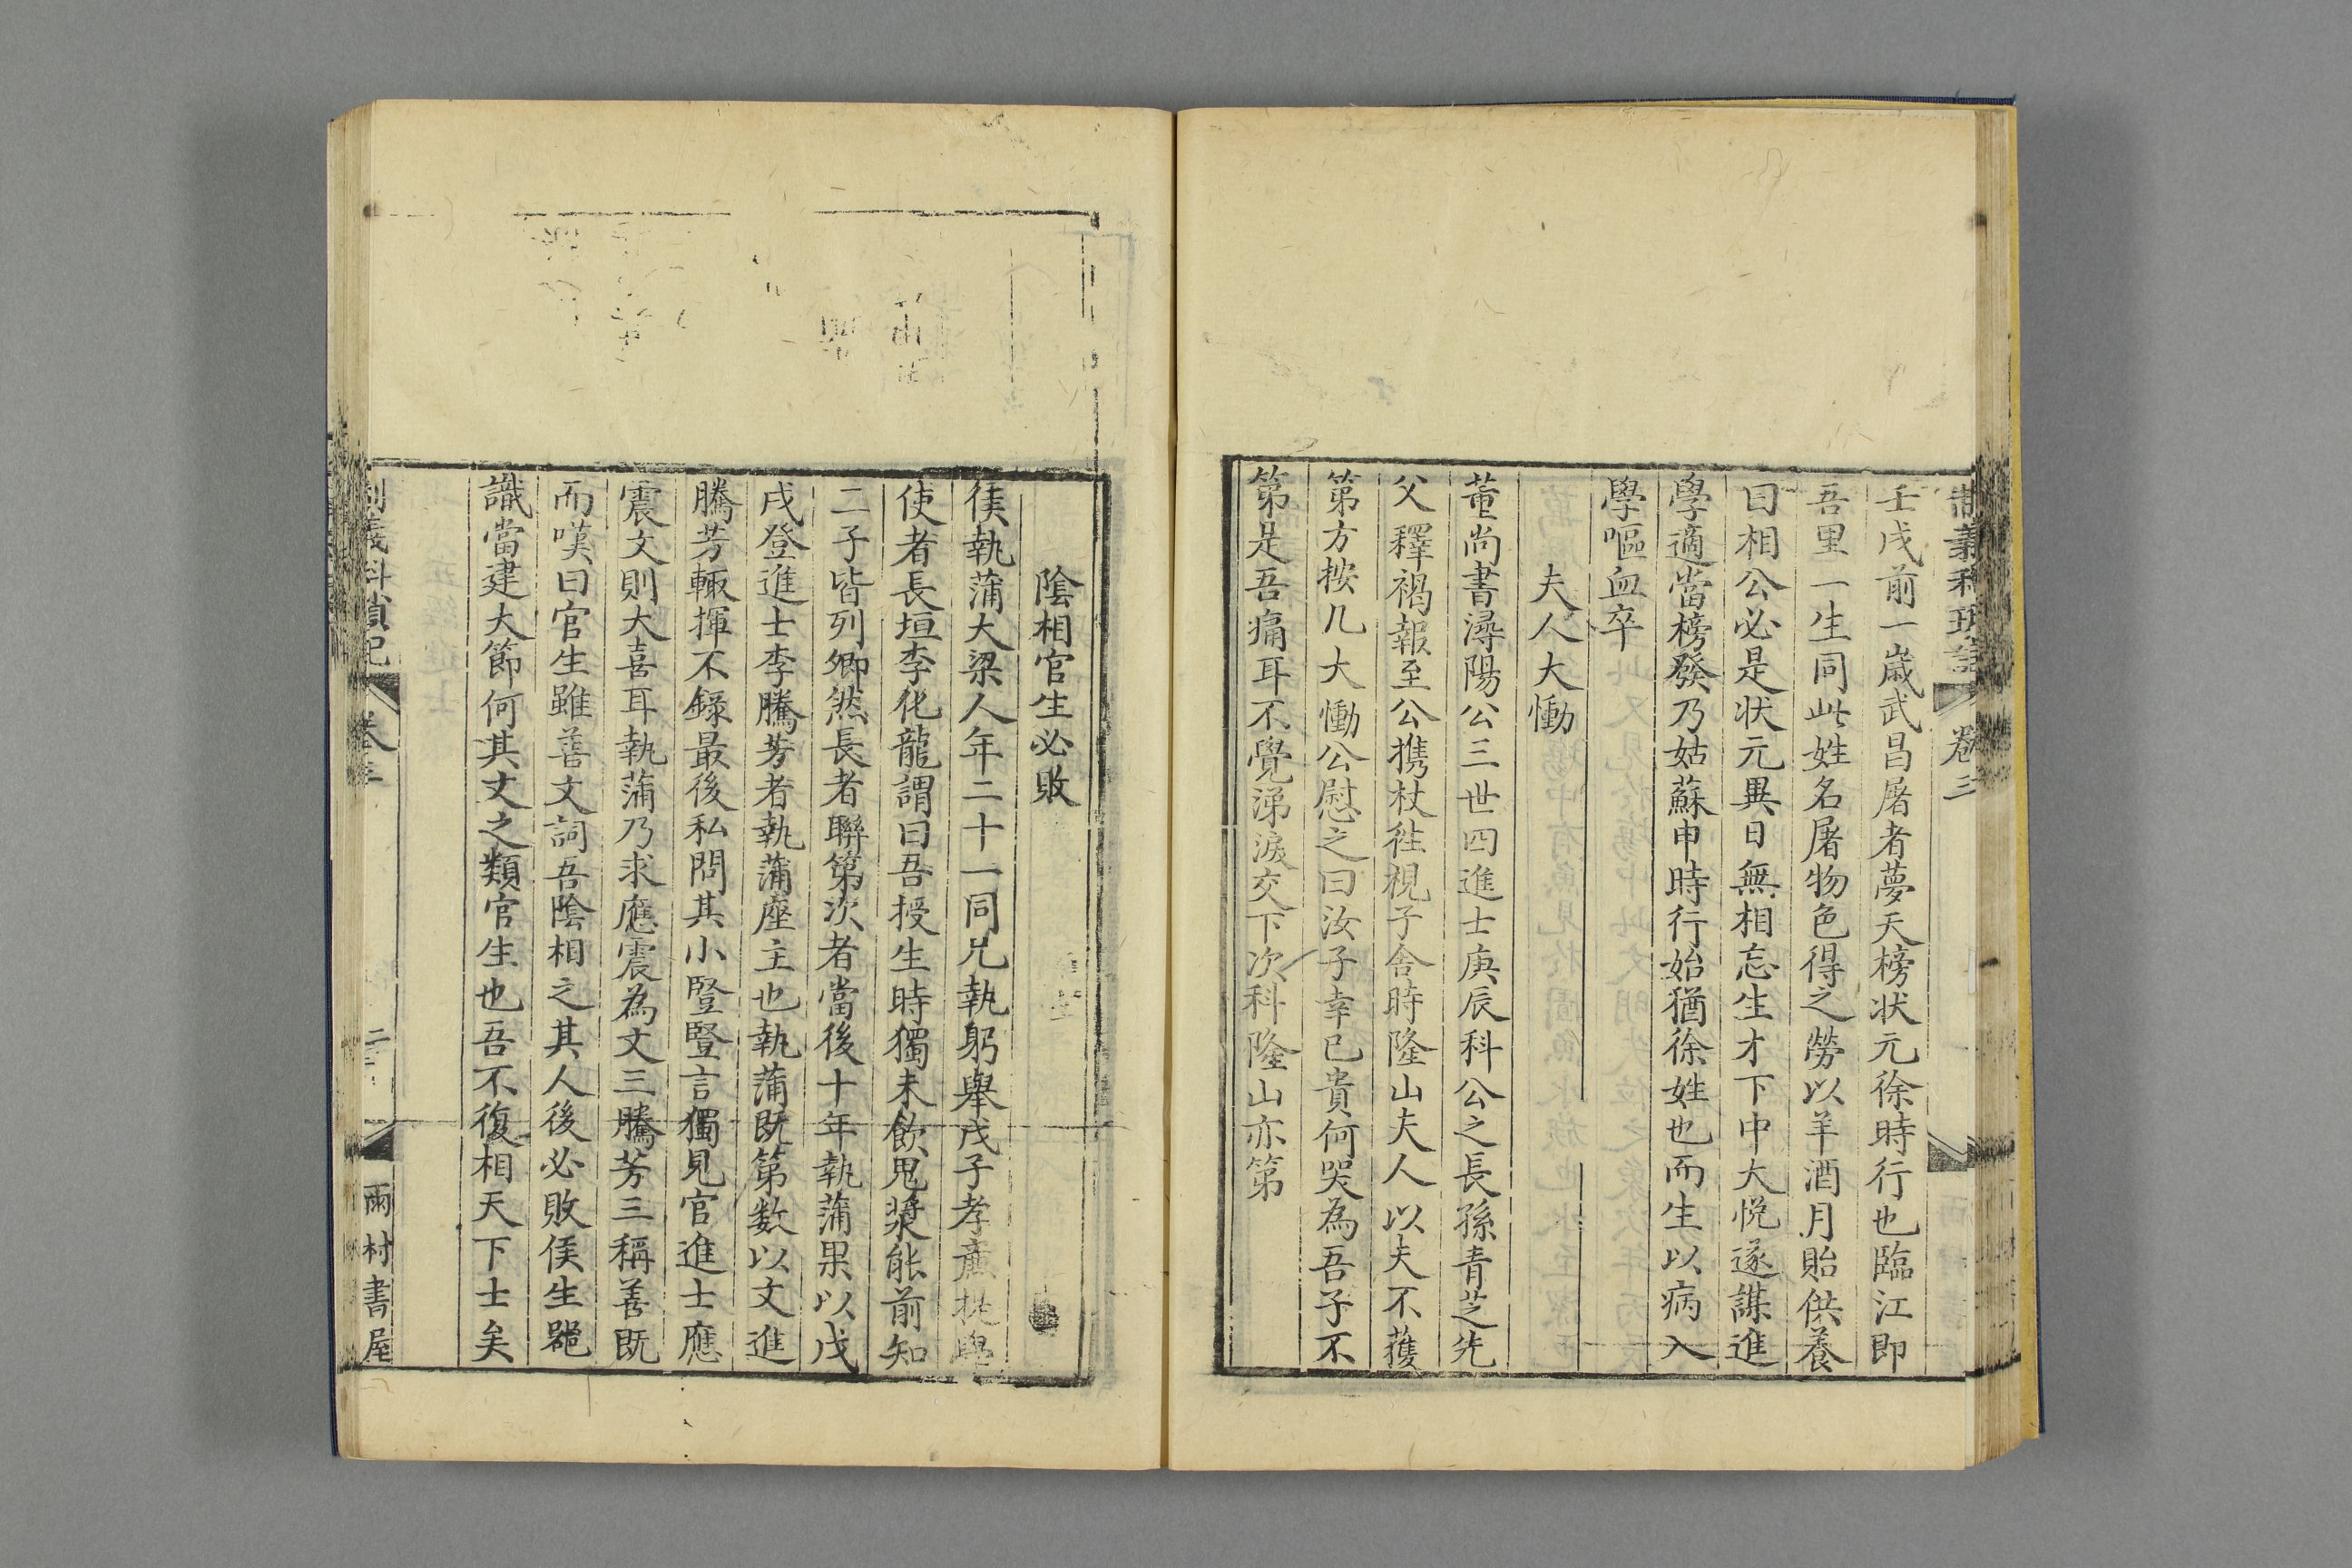 制義科瑣記 卷三
壬戌前一歲武昌屠者夢天榜狀元徐時行也臨江即
吾里一生同此姓名屠物色得之勞以羊酒月貽供養
曰相公必是狀元異日無相忘生才下中大悅遂謀進
學適當榜發乃姑蘇申時行始猶徐姓也而生以病入
學嘔血卒
夫人大慟
董尚書潯陽公三世四進士庚辰科公之長孫青芝先
父釋褐報至公攜杖往視子舍時隆山夫人以夫不獲
第方按几大慟公慰之曰汝子幸已貴何哭為吾子不
第是吾痛耳不覺涕淚交下次科隆山亦第
陰相官生必敗
侯執蒲大梁人年二十一同兄執躬舉戊子孝廉提學
使者長垣李化龍謂曰吾授生時獨未飲鬼漿能前知
二子皆列卿然長者聯第次者當後十年執蒲果以戊
戌登進士李騰芳者執蒲座主也執蒲既第數以文進
騰芳輒揮不錄最後私問其小豎豎言獨見官進士應
震文則大喜耳執蒲乃求應震為文三騰芳三稱善既
而嘆曰官生雖善文詞吾陰相之其人後必敗侯生器
識當建大節何其文之類官生也吾不復相天下士矣
制義科瑣記 卷三 二 雨村書屋